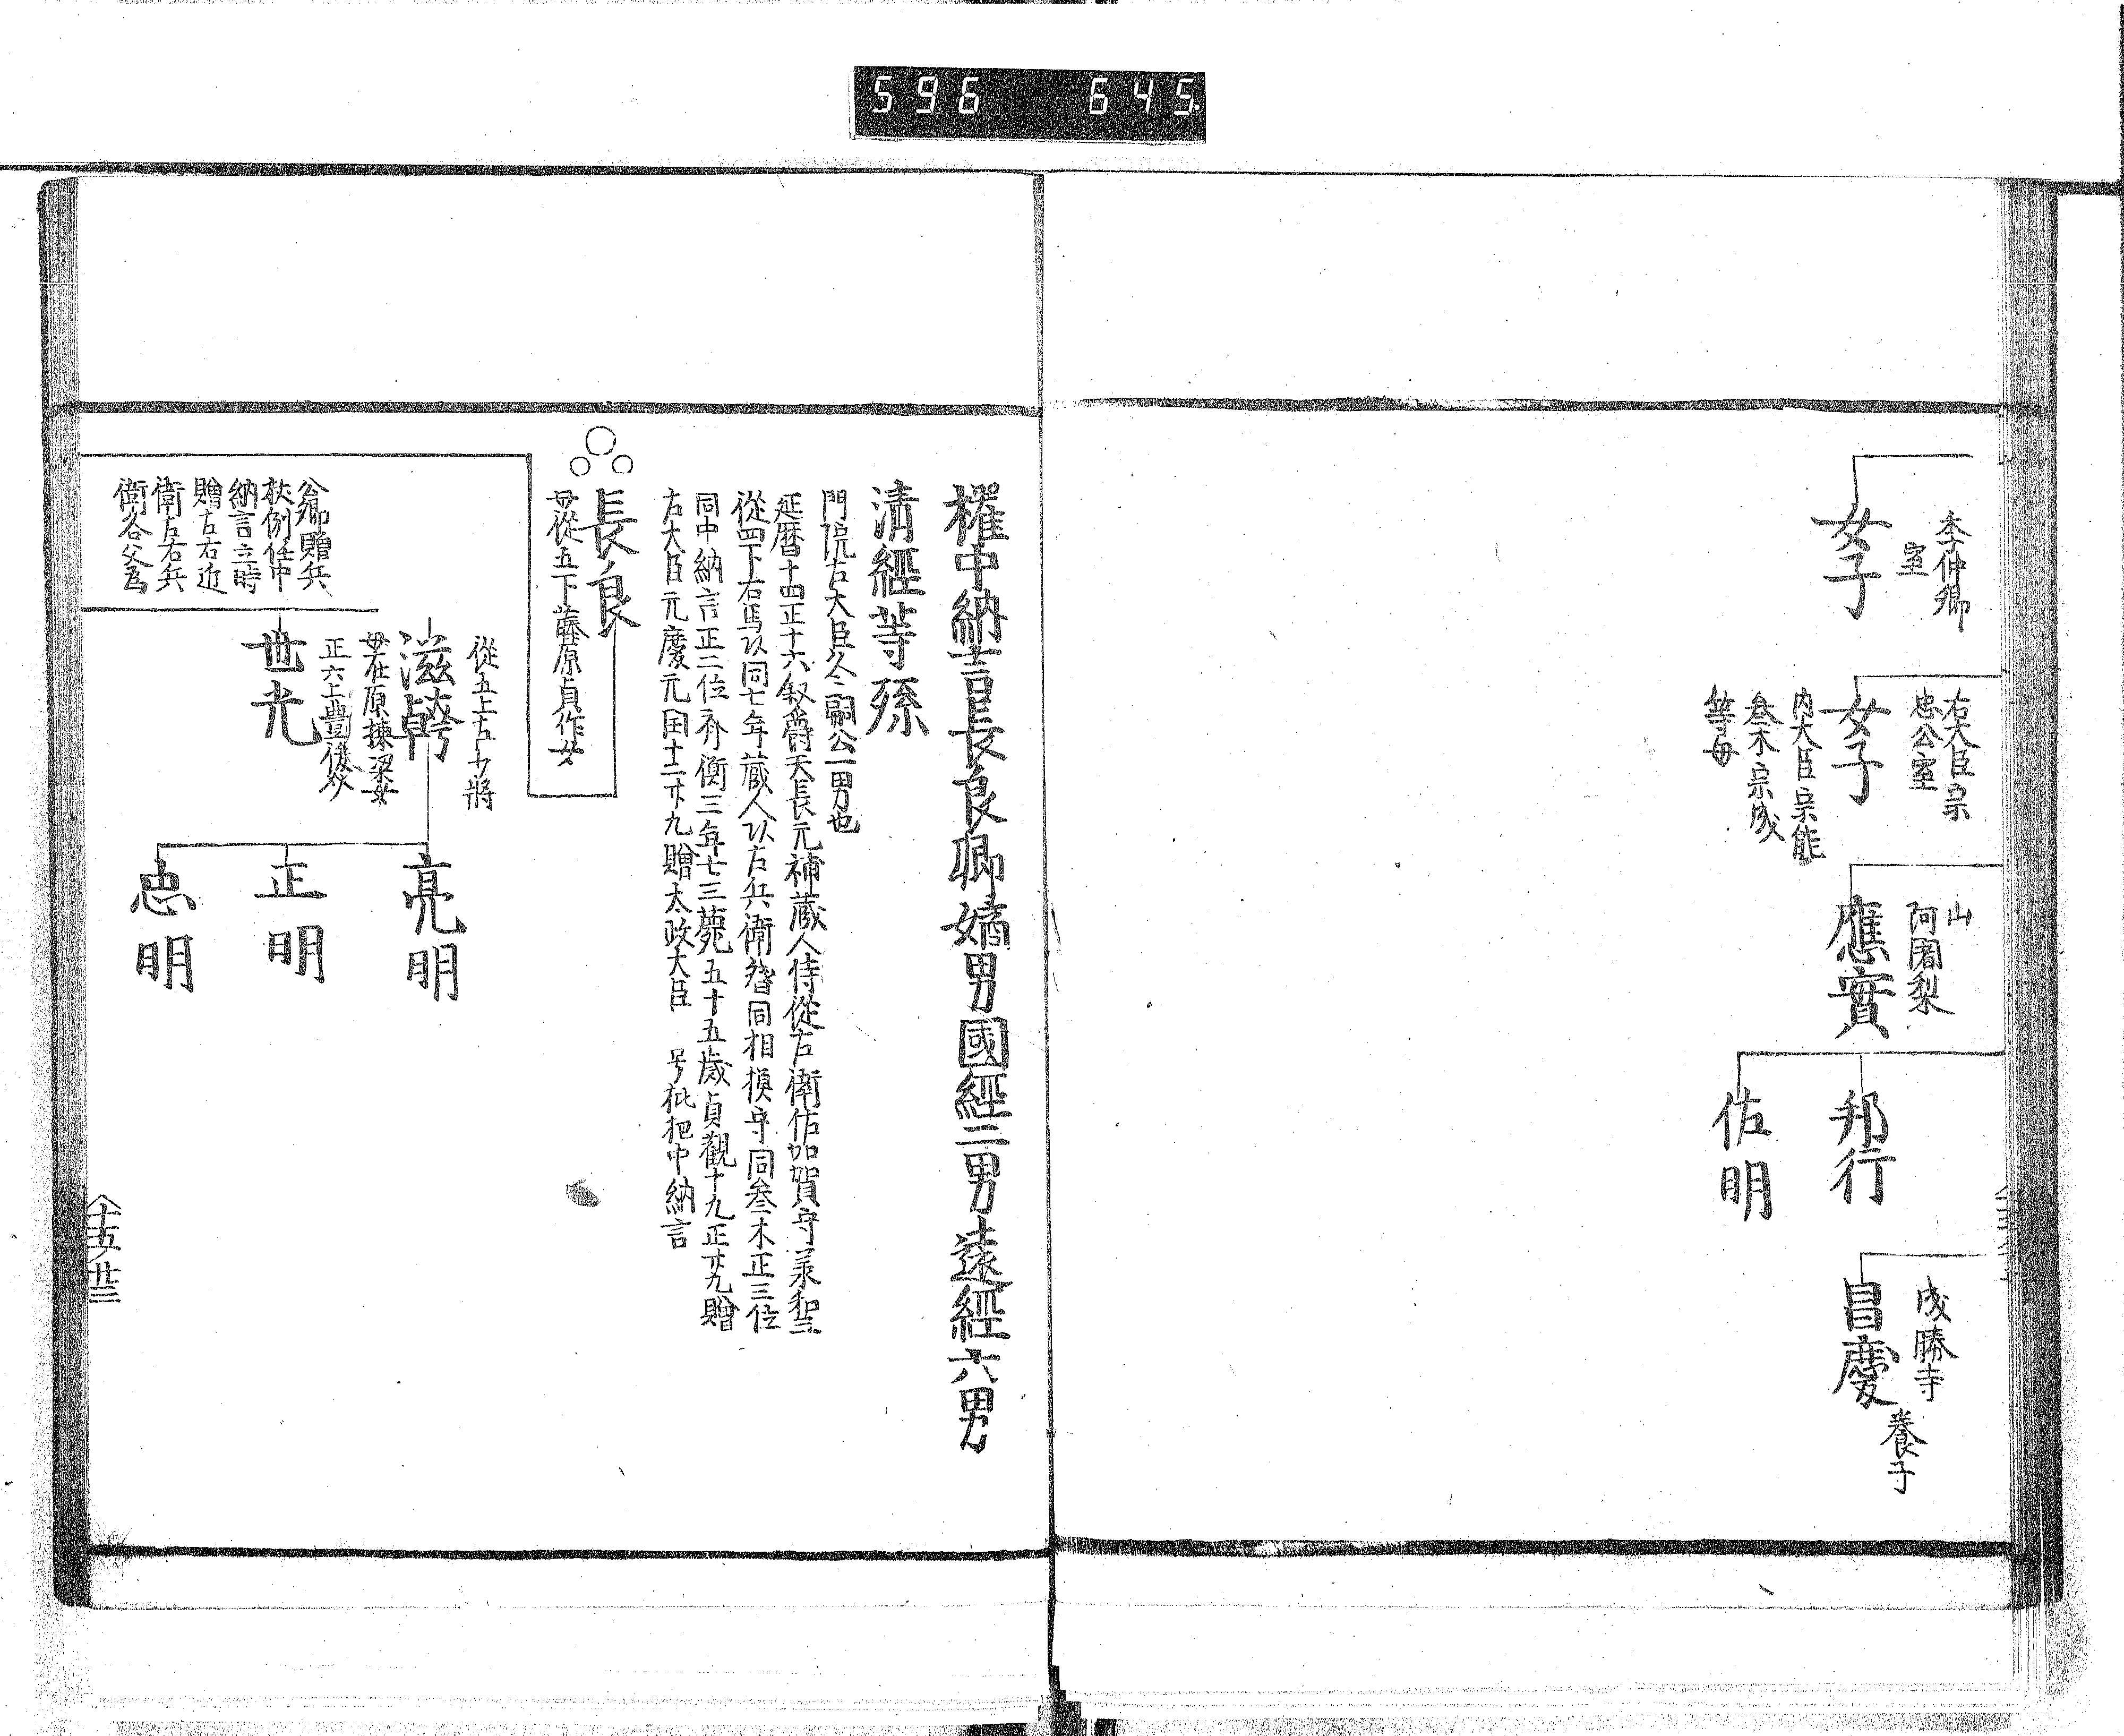 596 645
季仲卿
室
女子
右大臣宗
忠公室
女子
内大臣宗能
叄木宗成
等母
山
阿闍梨
應實
邦行
佐明
成勝寺
昌慶
養子
權中納言長良卿嫡男國經二男遠經六男
清經等孫
門院左大臣冬嗣公一男也
延暦十四正十六叙爵天長元補蔵人侍從右衛佐加賀守美和三
從四下右馬以同七年蔵人以右兵衛督同相摸守同叄木正三位
同中納言正二位斉衡三年七三薨五十五歳貞觀十九正廿九贈
左大臣元慶元閏十二廿九贈太政大臣 号枇杷中納言
長良
母從五下藤原貞作女
從五上左少將
滋
母在原棟梁女
正六上豊後
公卿贈兵
扶例任中
納言立時
贈左右近
衛左右兵
衛各父為
世光
亮明
正明
忠明
十五ノ廿三